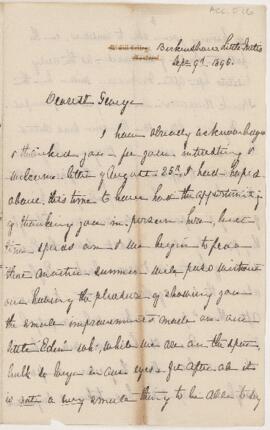 ACC. 576
McGill College
Montreal
Birkenshaw, Little Metis
Sept 9th 1895.
Dearest George
I have already acknowledged
& thanked you for your interesting &
welcome letter of August 25th. I had hoped
about this time to have had the opportunity
of thanking you in person here, but
time speeds on & we begin to fear
that another summer will pass without
our having the pleasure of showing you
the small improvements made on our
little "Eden" wh: while we are on the spot
bulk so large in our eyes. Yet after all it
is not a very small thing to be able to dey